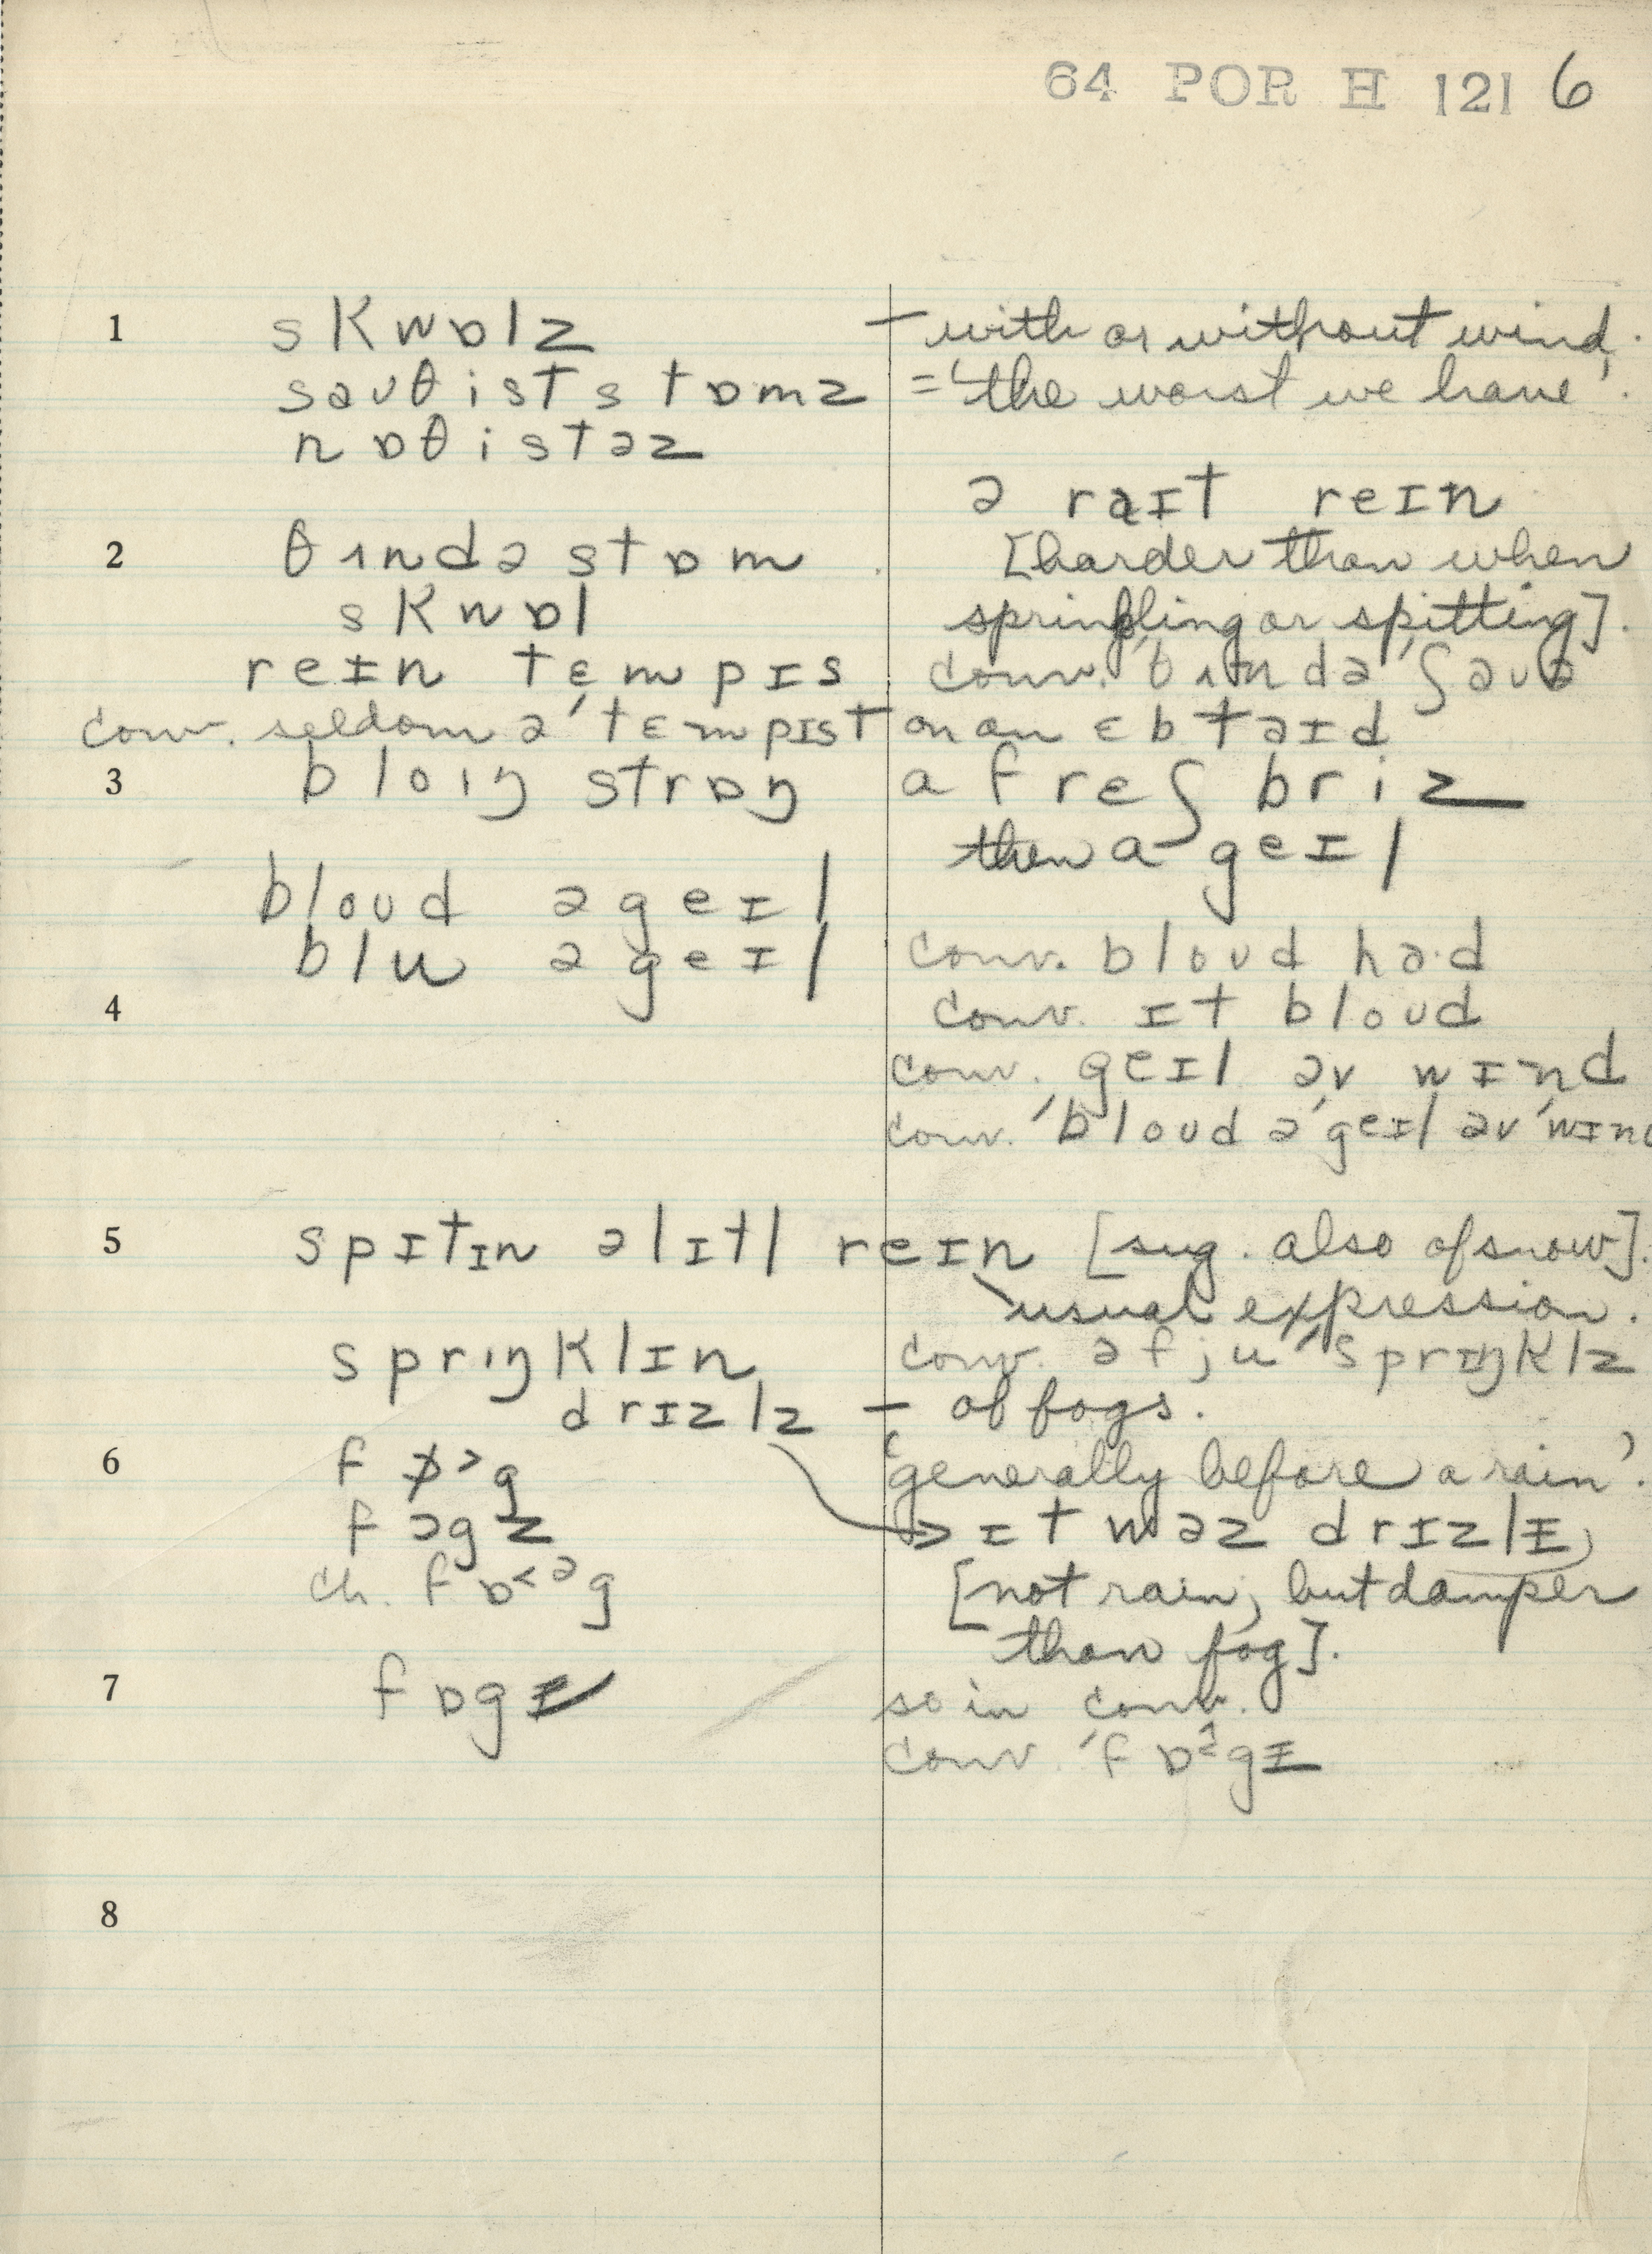 64 POR H 121 6
1 skwɒlz – with or without wind.
saʊθiststɒmz = 'the worst we have'.
nɒθistəz
ə raɪt reɪn
2 θʌndə stɒm [harder than when
skwɒl sprinkling or spitting].
reɪn tempɪs conv. 'θʌndə 'ʃaʊə
conv. seldom ə 'tɛmpɪst on an ɛb taɪd
3 bloɪŋ strɒŋ a frɛʃ briz
then a geɪl
bloʊd ə geɪl
blu ə geɪl conv. bloʊd ha·d
4 conv. ɪt bloʊd
conv. geɪl əv wɪnd
conv. 'bloʊd ə 'geɪl əv 'wɪnd
5 spɪtɪn ə lɪtl reɪn [sug. also of snow].
usual expression.
sprɪŋklɪn conv. ə fju 'sprɪŋklz
drɪzlz – of fogs.
6 'generally before a rain'.
fɒgz → ɪt wəz drɪzlɪ,
ch. fɒ˂ᵊg [not rain, but damper
than fog].
7 fɒgɪ so in conv.
conv. 'fɒᵊgɪ
8